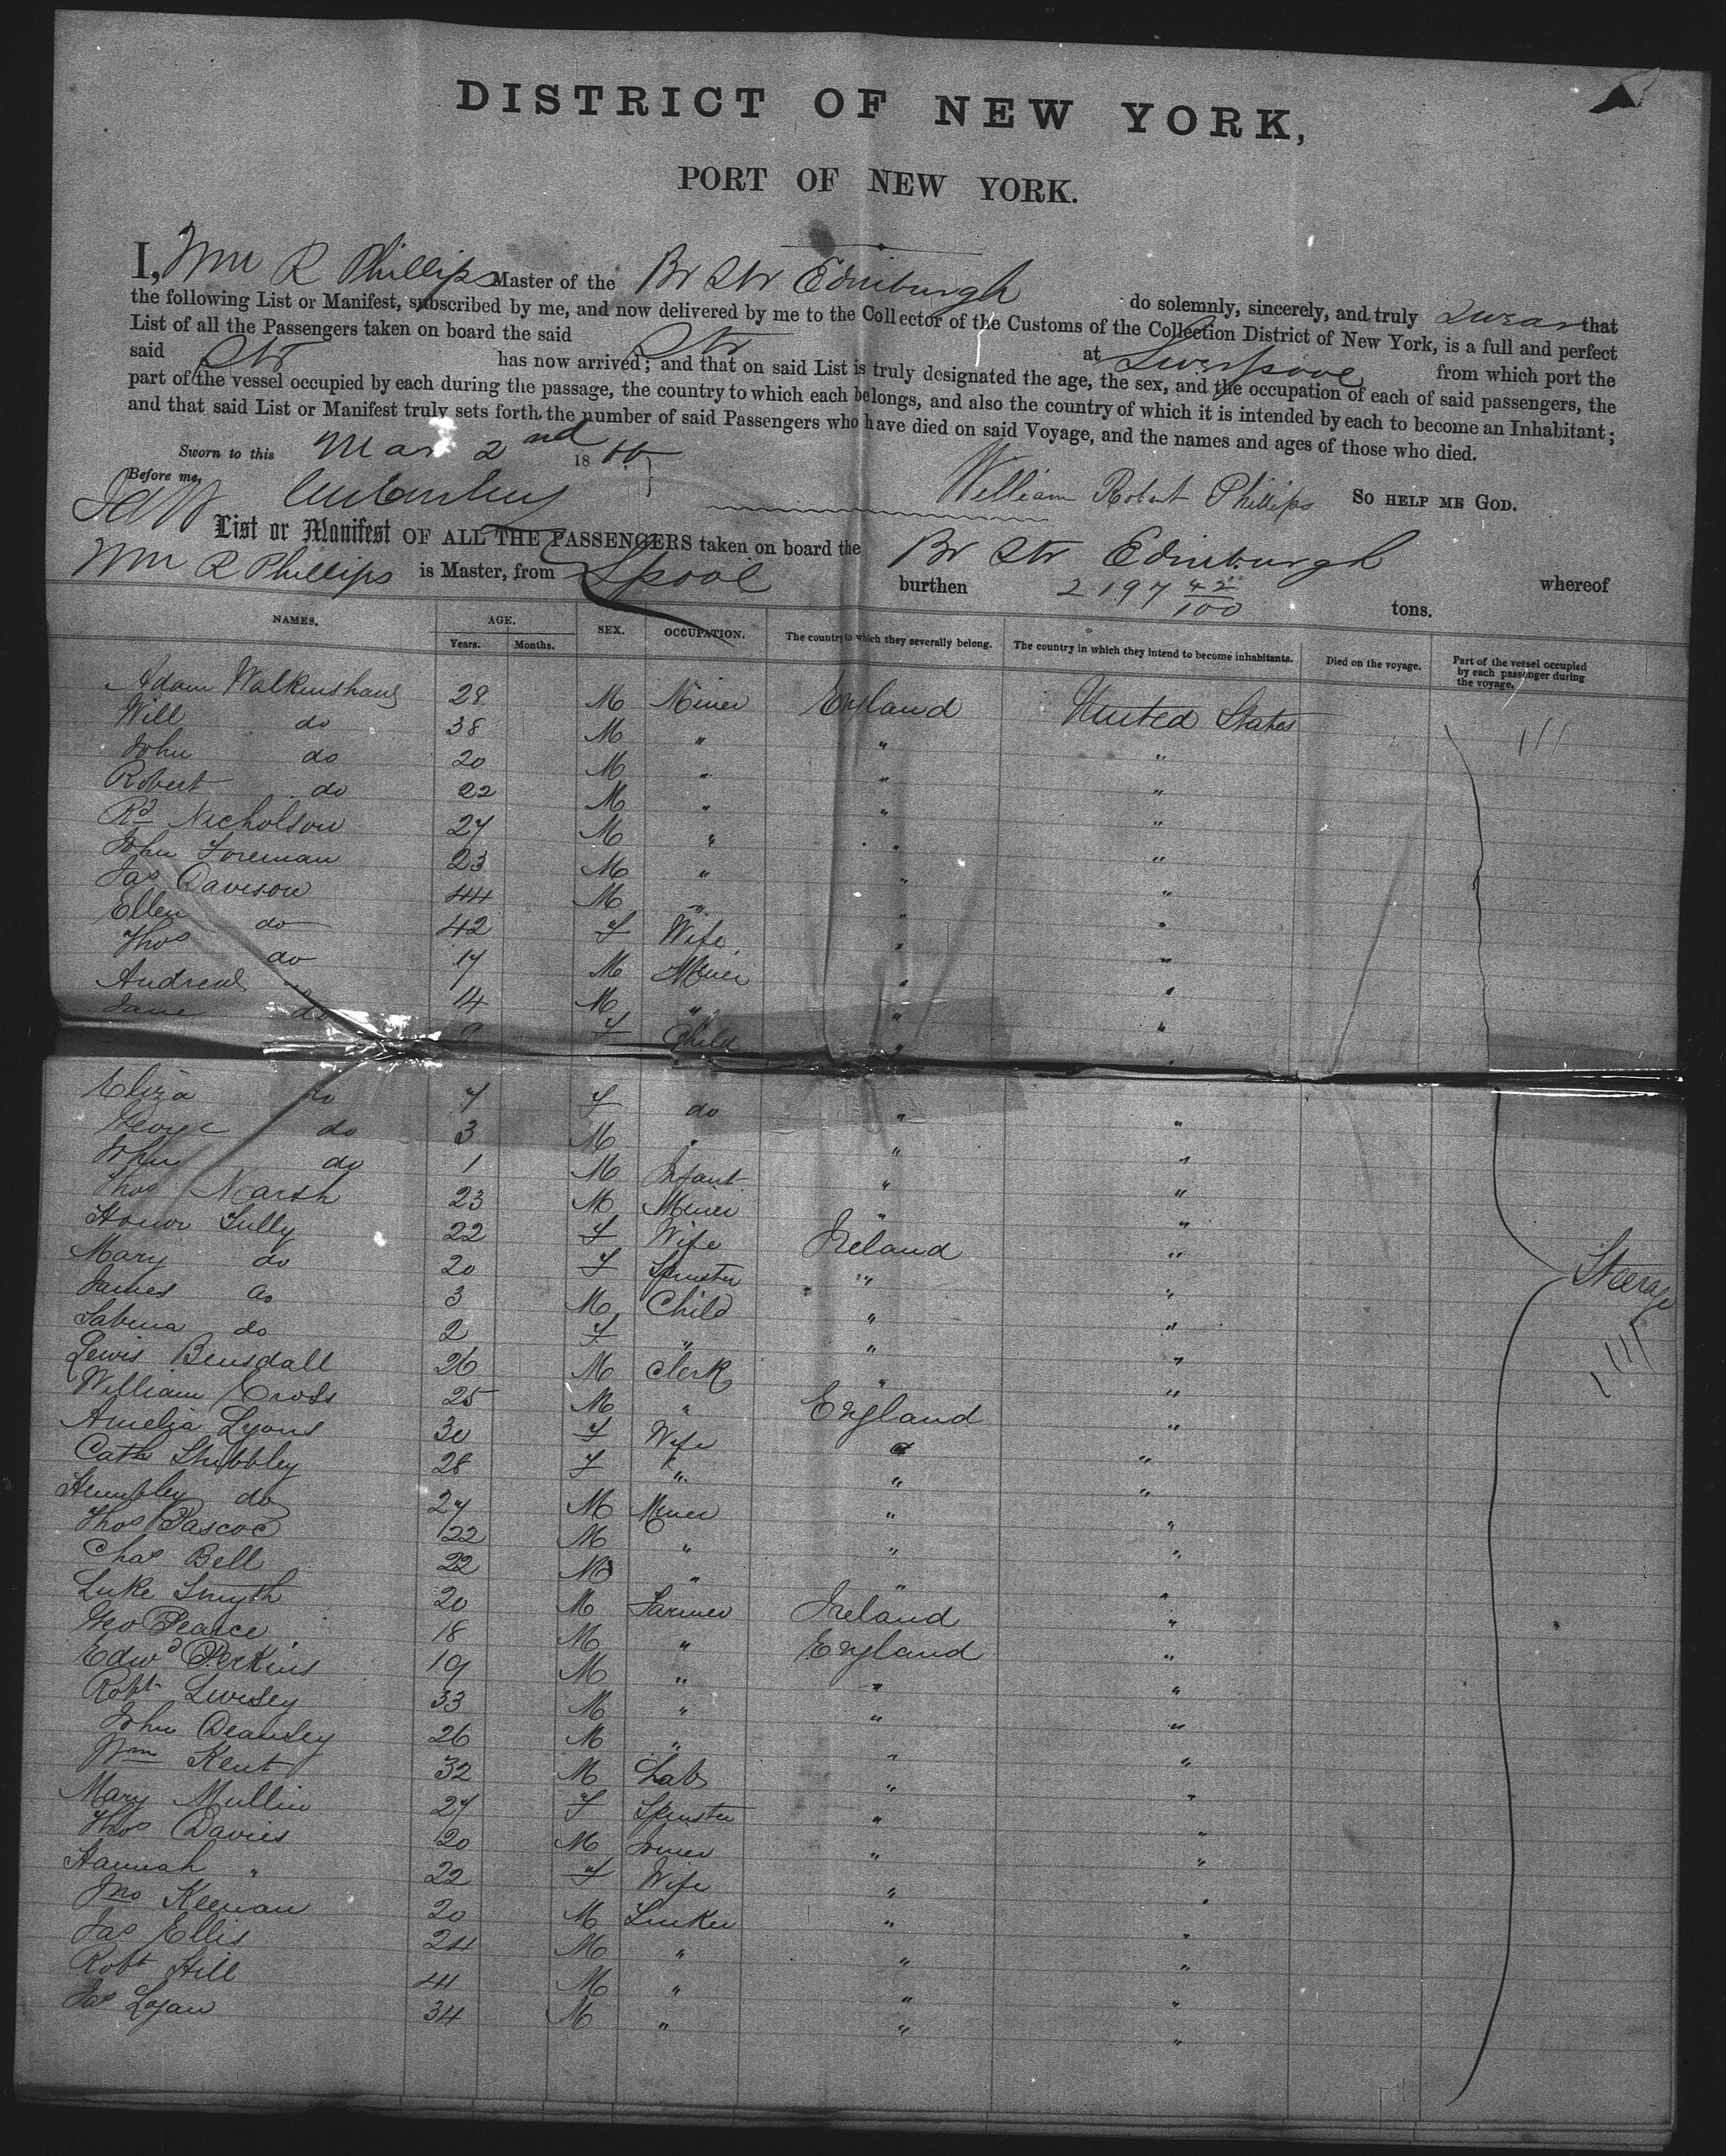 DISTRICT OF NEW YORK,
PORT OF NEW YORK.
I, Wm R Phillips Master of the Br Str Edinburgh do solemnly, sincerely, and truly swear that
the following List or Manifest, subscribed by me, and now delivered by me to the Collector of the Customs of the Collection District of New York, is a full and perfect
List of all the Passengers taken on board the said Str at Liverpool from which port the
said Str has now arrived; and that on said List is truly designated the age, the sex, and the occupation of each of said passengers, the
part of the vessel occupied by each during the passage, the country to which each belongs, and also the country of which it is intended by each to become an Inhabitant;
and that said List or Manifest truly sets forth the number of said Passengers who have died on said Voyage, and the names and ages of those who died.
Sworn to this Mar 2nd 18
Before me, William Robert Phillips SO HELP ME GOD.
List or Manifest OF ALL THE PASSENGERS taken on board the Br Str Edinburgh whereof
Wm R Phillips is Master, from Lpool burthen 2197 42/100 tons.
NAMES. AGE. SEX. OCCUPATION. The country to which they severally belong. The country in which they intend to become inhabitants. Died on the voyage. Part of the vessel occupied by each passenger during the voyage.
Years. Months.
Adam Walkinshaw 28 M Miner England United States
Will do 38 M " " "
John do 20 M " " "
Robert do 22 M " " "
Rd Nicholson 27 M " " "
John Foreman 23 M " " "
Jas Davison 44 M " " "
Ellen do 42 F Wife " "
Thos do 17 M Miner " "
Andrew " 14 M " " "
Jane do 9 F Child " "
Eliza do 7 F do " "
George do 3 M " " "
John do 1 M Infant " "
Thos Marsh 23 M Miner " "
Honor Tully 22 F Wife Ireland "
Mary do 20 F Spinster " "
James do 3 M Child " " Steerage
Sabina do 2 F " " "
Lewis Bensdall 26 M Clerk " "
William Cross 25 M " England "
Amelia Lyons 30 F Wife " "
Cath Shibbley 28 F " " "
do 27 M Miner " "
Thos Pascoe 22 M " " "
Chas Bell 22 M " " "
Luke Smyth 20 M Farmer Ireland "
Geo Pearce 18 M " England "
Edwd Perkins 19 M " " "
Robt Livesey 33 M " " "
John Deansley 26 M " " "
Wm Kent 32 M Lab " "
Mary Mullin 27 F Spinster " "
Thos Davies 20 M Joiner " "
Hannah " 22 F Wife " "
Jno Keenan 20 M " "
Jas Ellis 24 M " " "
Robt Hill 41 M " " "
Jas Logan 34 M " " "